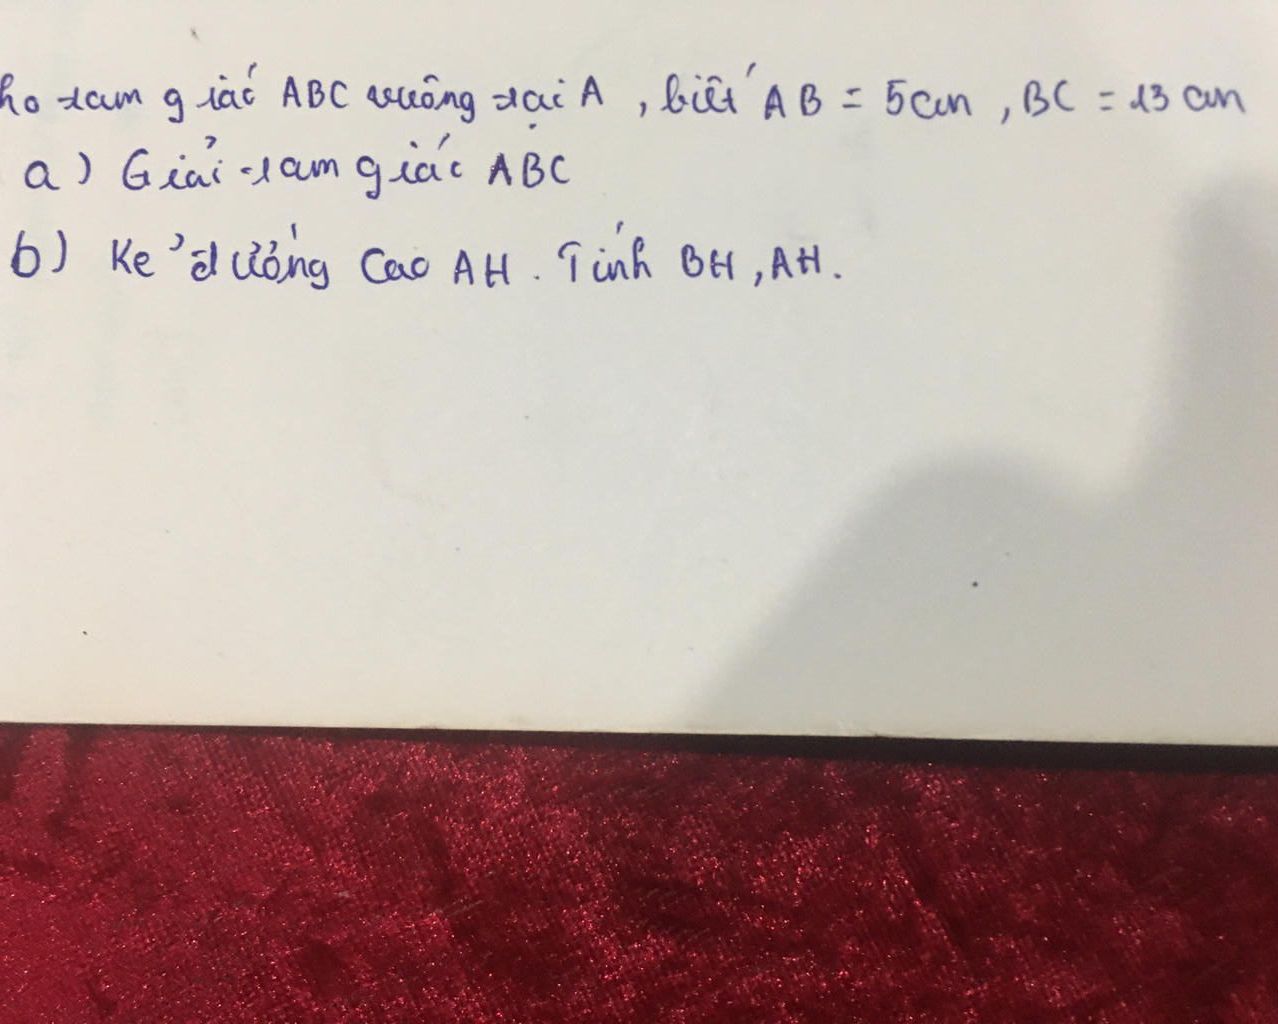 ho tam giác ABC vuông tại A, biết AB = 5cm, BC = 13 cm
a) Giải tam giác ABC
b) Kẻ đường cao AH. Tính BH, AH.